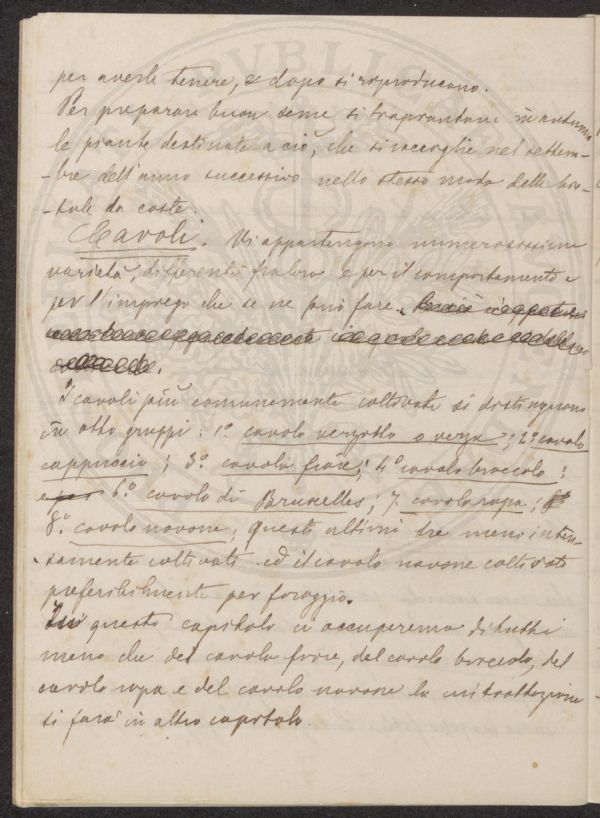 per averle tenere, e dopo si riproducono.
Per preparare buon seme si trapiantano in autunno
le piante destinate a ciò, che si raccoglie nel settem-
-bre dell'anno successivo nello stesso modo delle bie-
-tole da coste.
Cavoli. Vi appartengono numerosissime
varietà, differenti fra loro e per il comportamento e
per l'impiego che se ne può fare.
I cavoli più comunemente coltivati si distinguono
in otto gruppi: 1º cavolo verzotto o verza; 2º cavolo
cappuccio; 3º cavolo fiore; 4º cavolo broccolo;
6º cavolo di Bruxelles; 7. cavolo rapa;
8º. cavolo navone; questi ultimi tre meno inten-
samente coltivati ed il cavolo navone coltivato
preferibilmente per foraggio.
In questo capitolo ci occuperemo di tutti
meno che del cavolo fiore, del cavolo broccolo, del
cavolo rapa e del cavolo navone la cui trattazione
si farà in altro capitolo.
PVBLICA